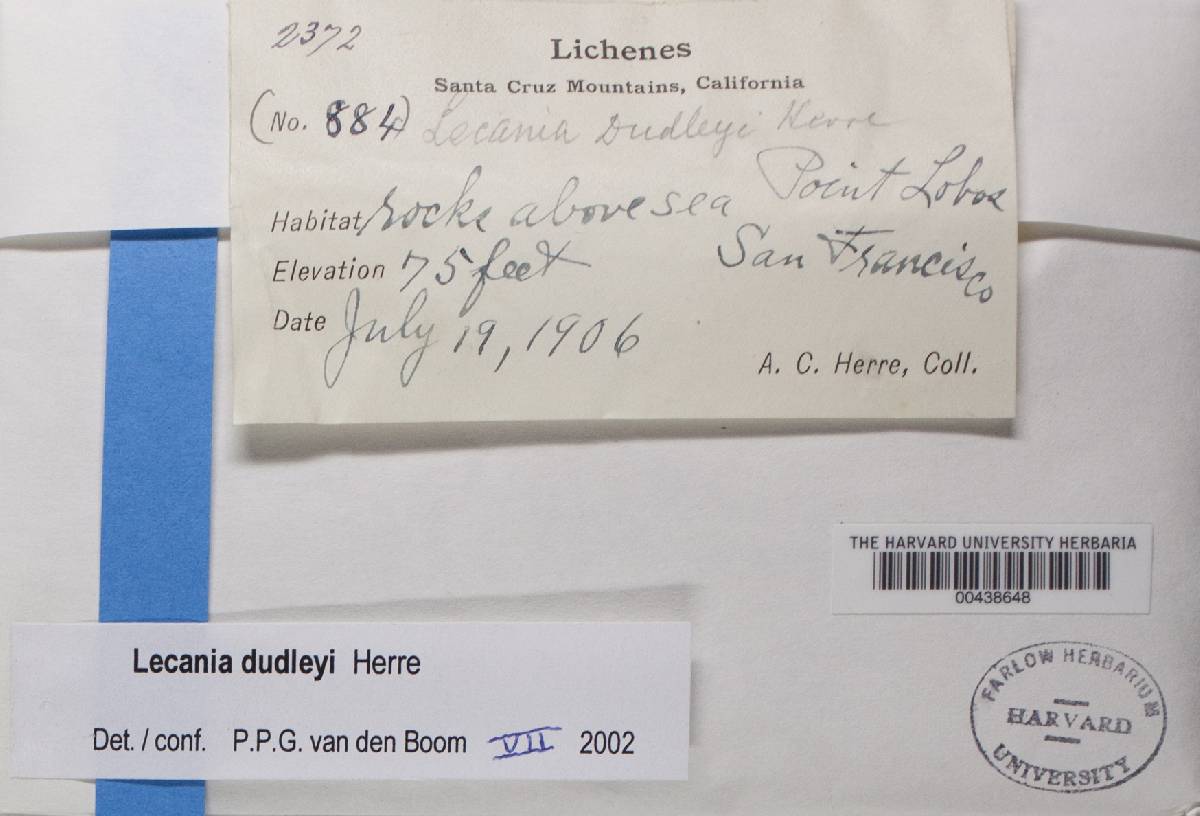 2372
Lichenes
Santa Cruz Mountains, California
(No. 884) Lecania Dudleyi Herre
Habitat rocks above sea Point Lobos
Elevation 75 feet San Francisco
Date July 19, 1906
A. C. Herre, Coll.
THE HARVARD UNIVERSITY HERBARIA
00438648
Lecania dudleyi Herre
Det. / conf. P.P.G. van den Boom VII 2002
FARLOW HERBARIUM
HARVARD
UNIVERSITY